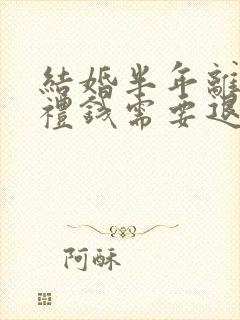 結婚半年離
禮錢需要退
阿酥